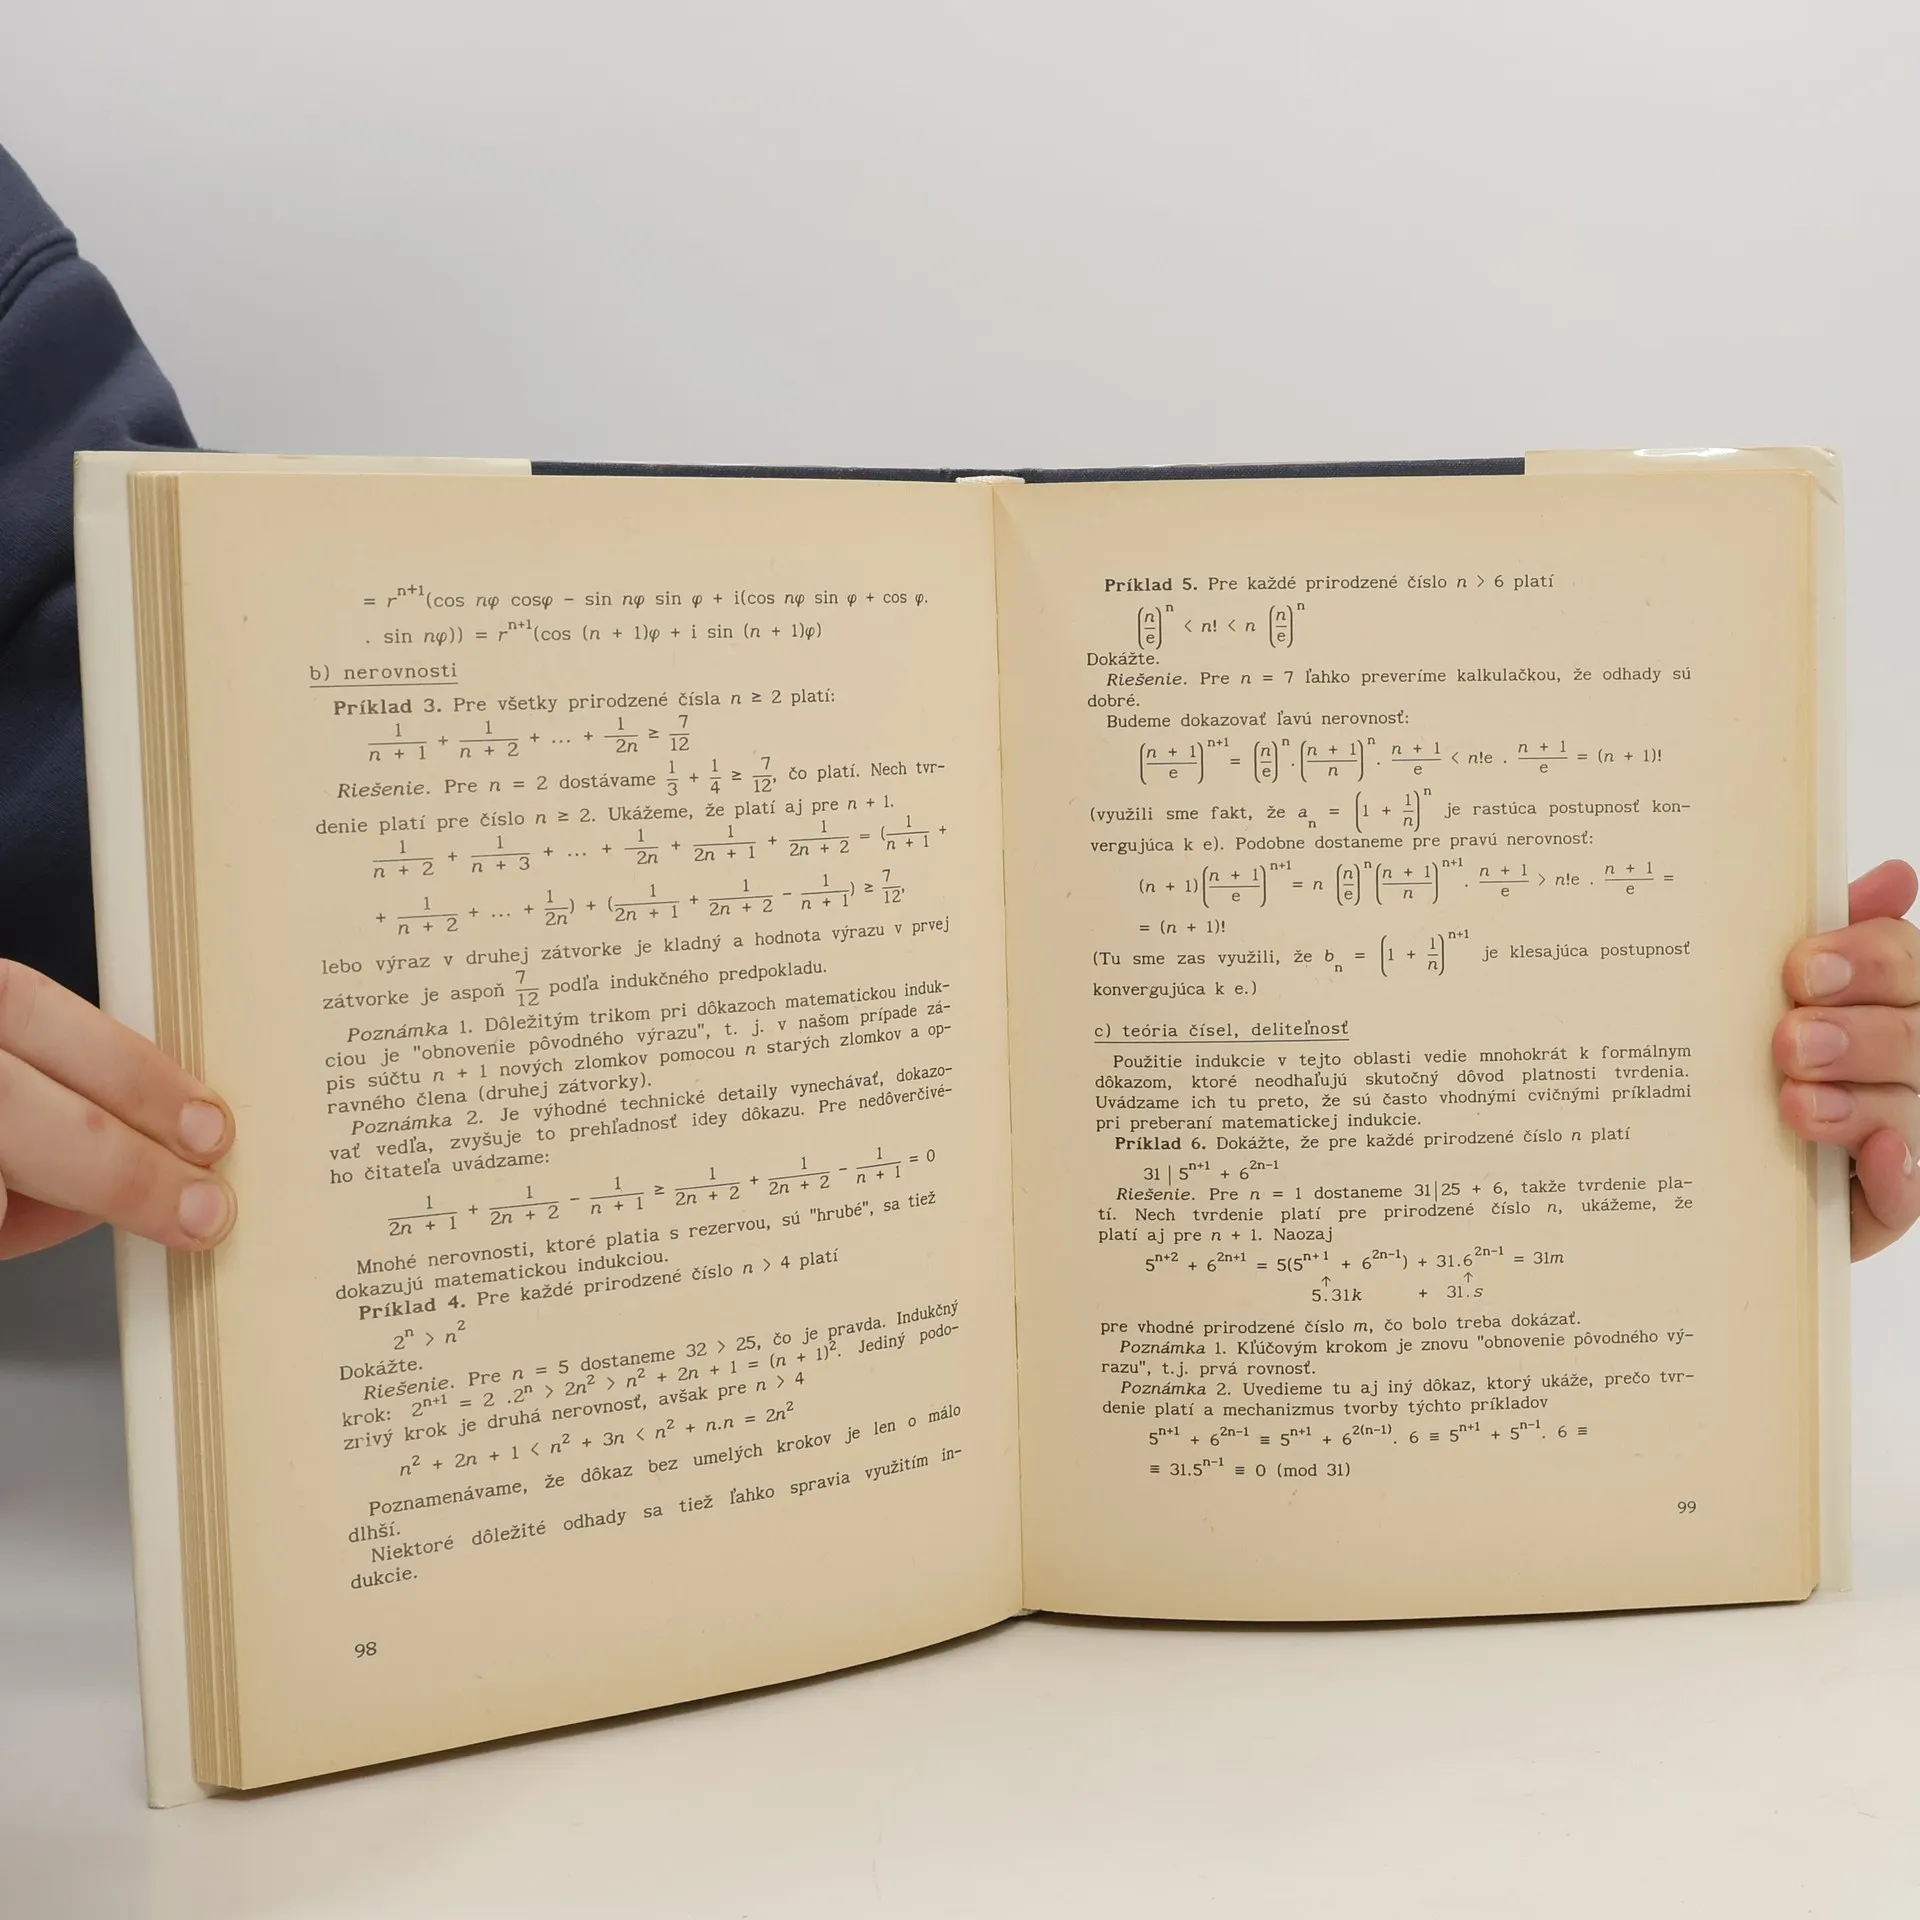 = r^{n+1}(cos nφ cosφ - sin nφ sin φ + i(cos nφ sin φ + cos φ.
. sin nφ)) = r^{n+1}(cos (n + 1)φ + i sin (n + 1)φ)
b) nerovnosti
Príklad 3. Pre všetky prirodzené čísla n ≥ 2 platí:
1/(n + 1) + 1/(n + 2) + ... + 1/2n ≥ 7/12
Riešenie. Pre n = 2 dostávame 1/3 + 1/4 ≥ 7/12, čo platí. Nech tvr-
denie platí pre číslo n ≥ 2. Ukážeme, že platí aj pre n + 1.
1/(n + 2) + 1/(n + 3) + ... + 1/2n + 1/(2n + 1) + 1/(2n + 2) = (1/(n + 1) +
+ 1/(n + 2) + ... + 1/2n) + (1/(2n + 1) + 1/(2n + 2) - 1/(n + 1)) ≥ 7/12,
lebo výraz v druhej zátvorke je kladný a hodnota výrazu v prvej
zátvorke je aspoň 7/12 podľa indukčného predpokladu.
Poznámka 1. Dôležitým trikom pri dôkazoch matematickou induk-
ciou je "obnovenie pôvodného výrazu", t. j. v našom prípade zá-
pis súčtu n + 1 nových zlomkov pomocou n starých zlomkov a op-
ravného člena (druhej zátvorky).
Poznámka 2. Je výhodné technické detaily vynechávať, dokazo-
vať vedľa, zvyšuje to prehľadnosť idey dôkazu. Pre nedôverčivé-
ho čitateľa uvádzame:
1/(2n + 1) + 1/(2n + 2) - 1/(n + 1) ≥ 1/(2n + 2) + 1/(2n + 2) - 1/(n + 1) = 0
Mnohé nerovnosti, ktoré platia s rezervou, sú "hrubé", sa tiež
dokazujú matematickou indukciou.
Príklad 4. Pre každé prirodzené číslo n > 4 platí
2^n > n^2
Dokážte.
Riešenie. Pre n = 5 dostaneme 32 > 25, čo je pravda. Indukčný
krok: 2^{n+1} = 2 .2^n > 2n^2 > n^2 + 2n + 1 = (n + 1)^2. Jediný podo-
zrivý krok je druhá nerovnosť, avšak pre n > 4
n^2 + 2n + 1 < n^2 + 3n < n^2 + n.n = 2n^2
Poznamenávame, že dôkaz bez umelých krokov je len o málo
dlhší.
Niektoré dôležité odhady sa tiež ľahko spravia využitím in-
dukcie.
98
Príklad 5. Pre každé prirodzené číslo n > 6 platí
(n/e)^n < n! < n (n/e)^n
Dokážte.
Riešenie. Pre n = 7 ľahko preveríme kalkulačkou, že odhady sú
dobré.
Budeme dokazovať ľavú nerovnosť:
((n + 1)/e)^{n+1} = (n/e)^n . ((n + 1)/n)^n . (n + 1)/e < n!e . (n + 1)/e = (n + 1)!
(využili sme fakt, že a_n = (1 + 1/n)^n je rastúca postupnosť kon-
vergujúca k e). Podobne dostaneme pre pravú nerovnosť:
(n + 1)((n + 1)/e)^{n+1} = n (n/e)^n ((n + 1)/n)^{n+1} . (n + 1)/e > n!e . (n + 1)/e =
= (n + 1)!
(Tu sme zas využili, že b_n = (1 + 1/n)^{n+1} je klesajúca postupnosť
konvergujúca k e.)
c) teória čísel, deliteľnosť
Použitie indukcie v tejto oblasti vedie mnohokrát k formálnym
dôkazom, ktoré neodhaľujú skutočný dôvod platnosti tvrdenia.
Uvádzame ich tu preto, že sú často vhodnými cvičnými príkladmi
pri preberaní matematickej indukcie.
Príklad 6. Dokážte, že pre každé prirodzené číslo n platí
31 | 5^{n+1} + 6^{2n-1}
Riešenie. Pre n = 1 dostaneme 31|25 + 6, takže tvrdenie pla-
tí. Nech tvrdenie platí pre prirodzené číslo n, ukážeme, že
platí aj pre n + 1. Naozaj
5^{n+2} + 6^{2n+1} = 5(5^{n+1} + 6^{2n-1}) + 31.6^{2n-1} = 31m
↑ ↑
5.31k + 31.s
pre vhodné prirodzené číslo m, čo bolo treba dokázať.
Poznámka 1. Kľúčovým krokom je znovu "obnovenie pôvodného vý-
razu", t.j. prvá rovnosť.
Poznámka 2. Uvedieme tu aj iný dôkaz, ktorý ukáže, prečo tvr-
denie platí a mechanizmus tvorby týchto príkladov
5^{n+1} + 6^{2n-1} ≡ 5^{n+1} + 6^{2(n-1)}. 6 ≡ 5^{n+1} + 5^{n-1}. 6 ≡
≡ 31.5^{n-1} ≡ 0 (mod 31)
99